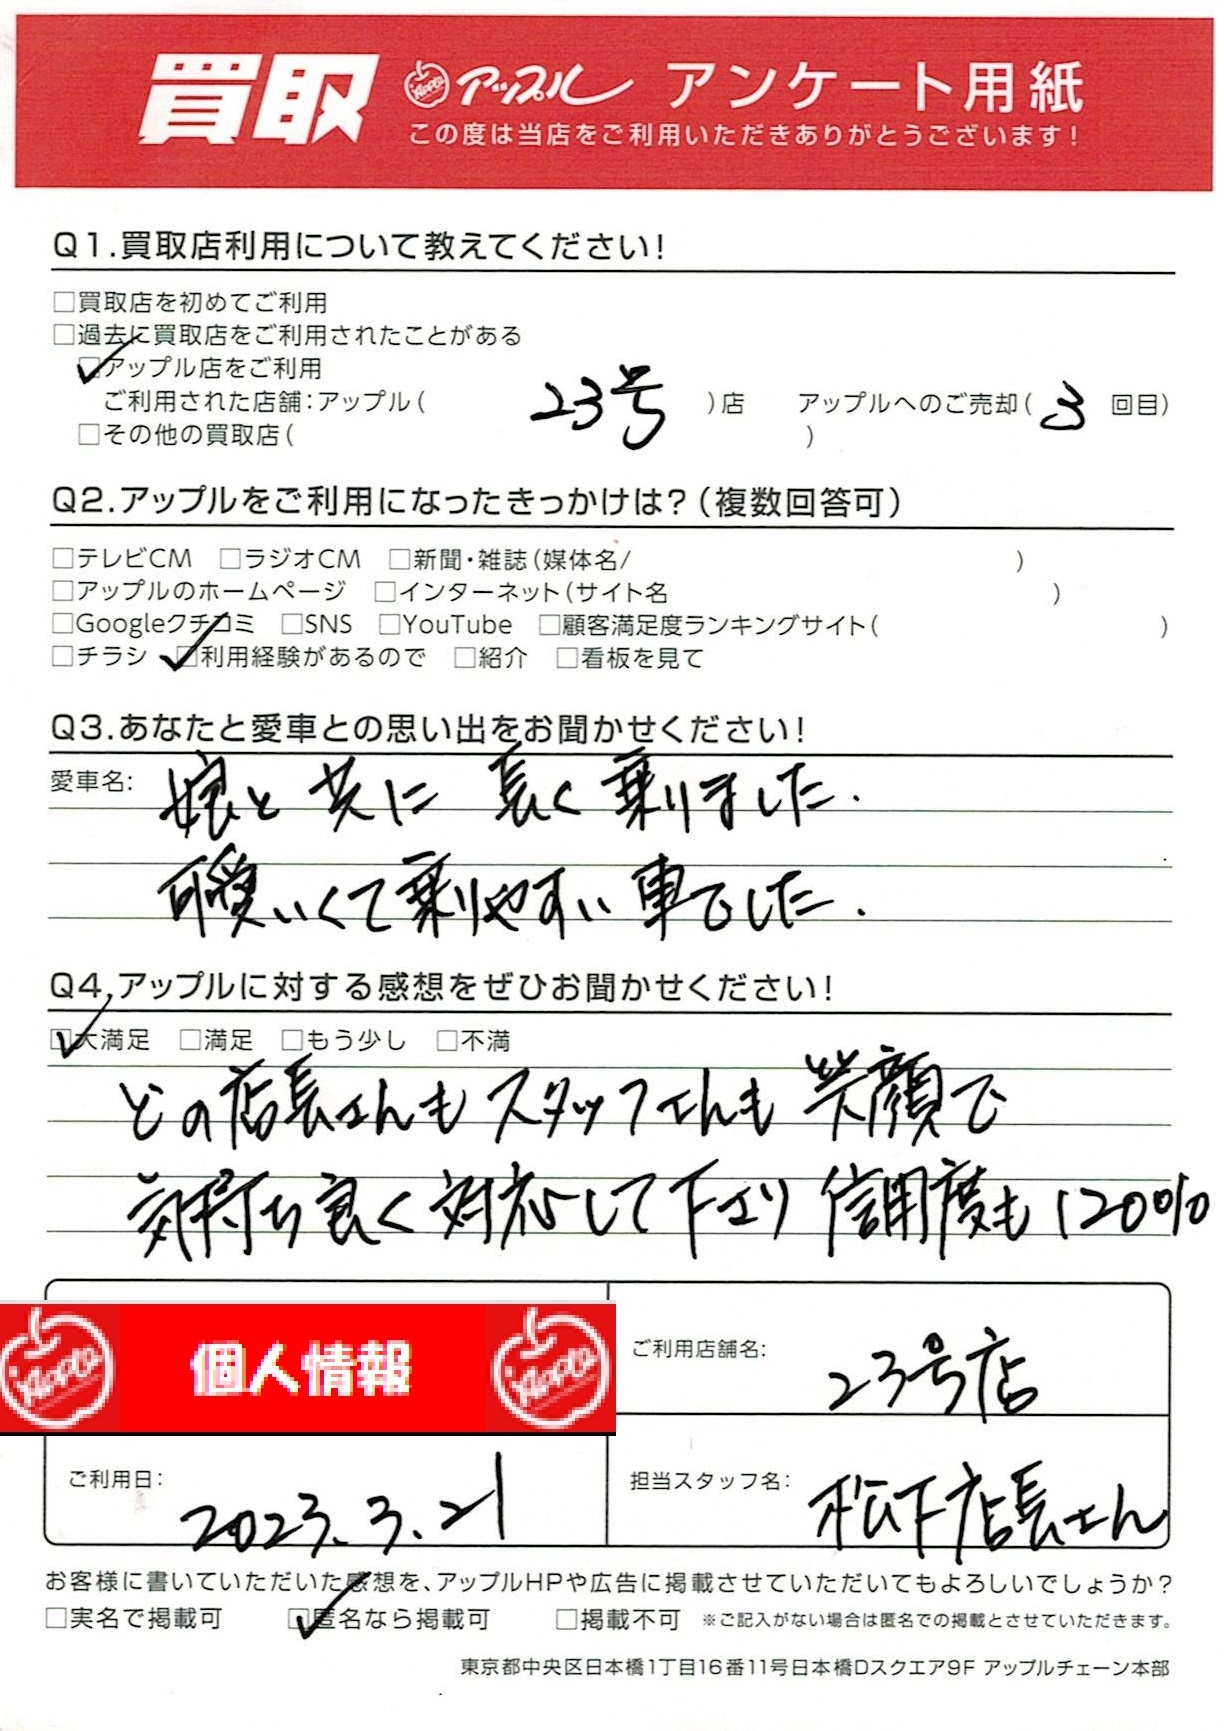 買取 Apple アップル アンケート用紙
この度は当店をご利用いただきありがとうございます!
Q1.買取店利用について教えてください!
□買取店を初めてご利用
□過去に買取店をご利用されたことがある
□アップル店をご利用
ご利用された店舗:アップル( 23号 )店 アップルへのご売却( 3 回目)
□その他の買取店( )
Q2.アップルをご利用になったきっかけは?(複数回答可)
□テレビCM □ラジオCM □新聞・雑誌(媒体名/ )
□アップルのホームページ □インターネット(サイト名 )
□Googleクチコミ □SNS □YouTube □顧客満足度ランキングサイト( )
□チラシ □利用経験があるので □紹介 □看板を見て
Q3.あなたと愛車との思い出をお聞かせください!
愛車名: 娘と共に 長く乗りました.
可愛いくて乗りやすい車でした.
Q4.アップルに対する感想をぜひお聞かせください!
□大満足 □満足 □もう少し □不満
どの店長さんもスタッフさんも笑顔で
気持ち良く対応して下さり信用度も120%
Apple 個人情報 Apple
ご利用店舗名: 23号店
ご利用日: 2023.3.21
担当スタッフ名: 松下店長さん
お客様に書いていただいた感想を、アップルHPや広告に掲載させていただいてもよろしいでしょうか?
□実名で掲載可 □匿名なら掲載可 □掲載不可 ※ご記入がない場合は匿名での掲載とさせていただきます。
東京都中央区日本橋1丁目16番11号日本橋Dスクエア9F アップルチェーン本部